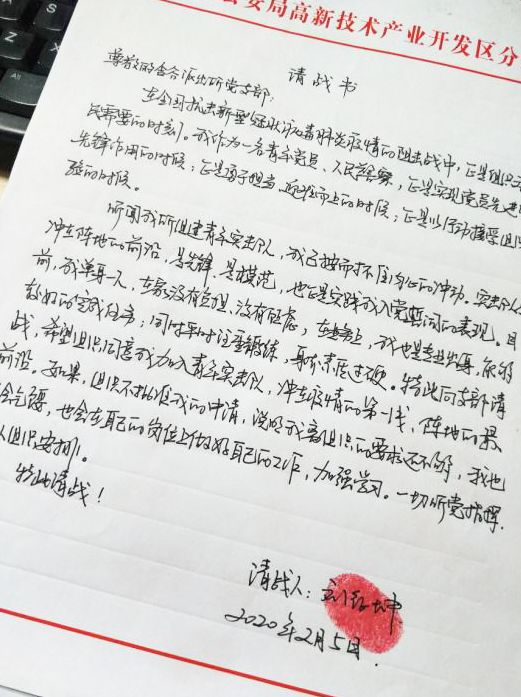 公安局高新技术产业开发区分
请战书
尊敬的合派出所党支部:
在全国抗击新型冠状病毒肺炎疫情的阻击战中,正是组织
民需要的时刻。我作为一名青年党员,人民警察,正是实现党员先进
先锋作用的时候;正是勇于担当、迎难而上的时候;正是以行动接受组
验的时候。
听闻我所组建青年突击队,我已按耐不住内心的冲动。突击队
冲在阵地的前沿,是先锋,是模范,也正是实践我入党誓词的表现。目
前,我单身一人,在家没有负担,没有顾虑;在业务上,我也是专业出身,能够
较好的完成任务;同时平时注重锻炼,身体素质过硬。特此向支部请
战,希望组织同意我加入青年突击队,冲在疫情的第一线,阵地的最
前沿。如果,组织不批准我的申请,说明我离组织的要求还不够,我也
会气馁,也会在自己的岗位上做好自己的工作,加强学习。一切听党指挥,
从组织安排!
特此请战!
请战人:
2020年2月5日.